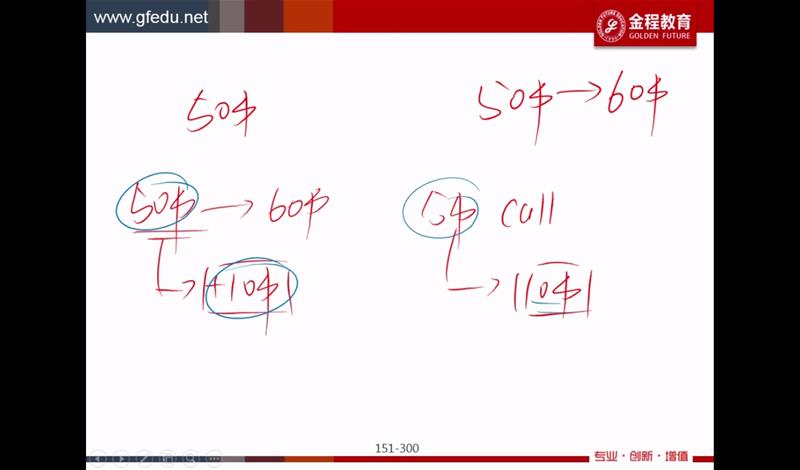 www.gfedu.net
金程教育
GOLDEN FUTURE
50$
50$→60$
50$→60$
5$ call
+10$
10$
151-300
专业·创新·增值